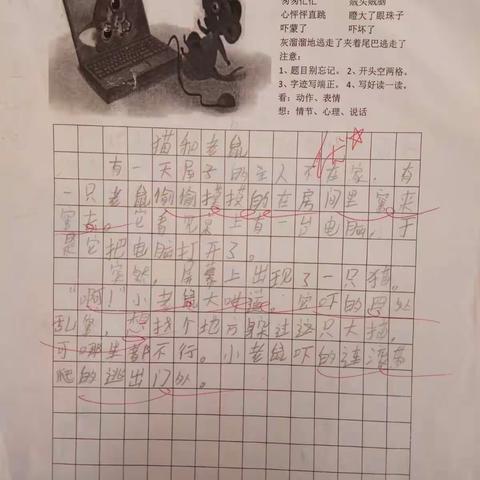 匆匆忙忙 贼头贼脑
心怦怦直跳 瞪大了眼珠子
吓蒙了 吓坏了
灰溜溜地逃走了夹着尾巴逃走了
注意：
1、题目别忘记。2、开头空两格。
3、字迹写端正。4、写好读一读。
看：动作、表情
想：情节、心理、说话
猫和老鼠
优
有一天屋子的主人不在家，有
一只老鼠偷偷摸摸的在房间里窜来
窜去。它看见桌上有一台电脑，于
是它把电脑打开了。
突然，屏幕上出现了一只猫。
“啊！”小老鼠大，它吓的四处
乱窜，想找个地方躲过这只大猫，
可哪里都不行。小老鼠吓的连滚带
爬的逃出门外。